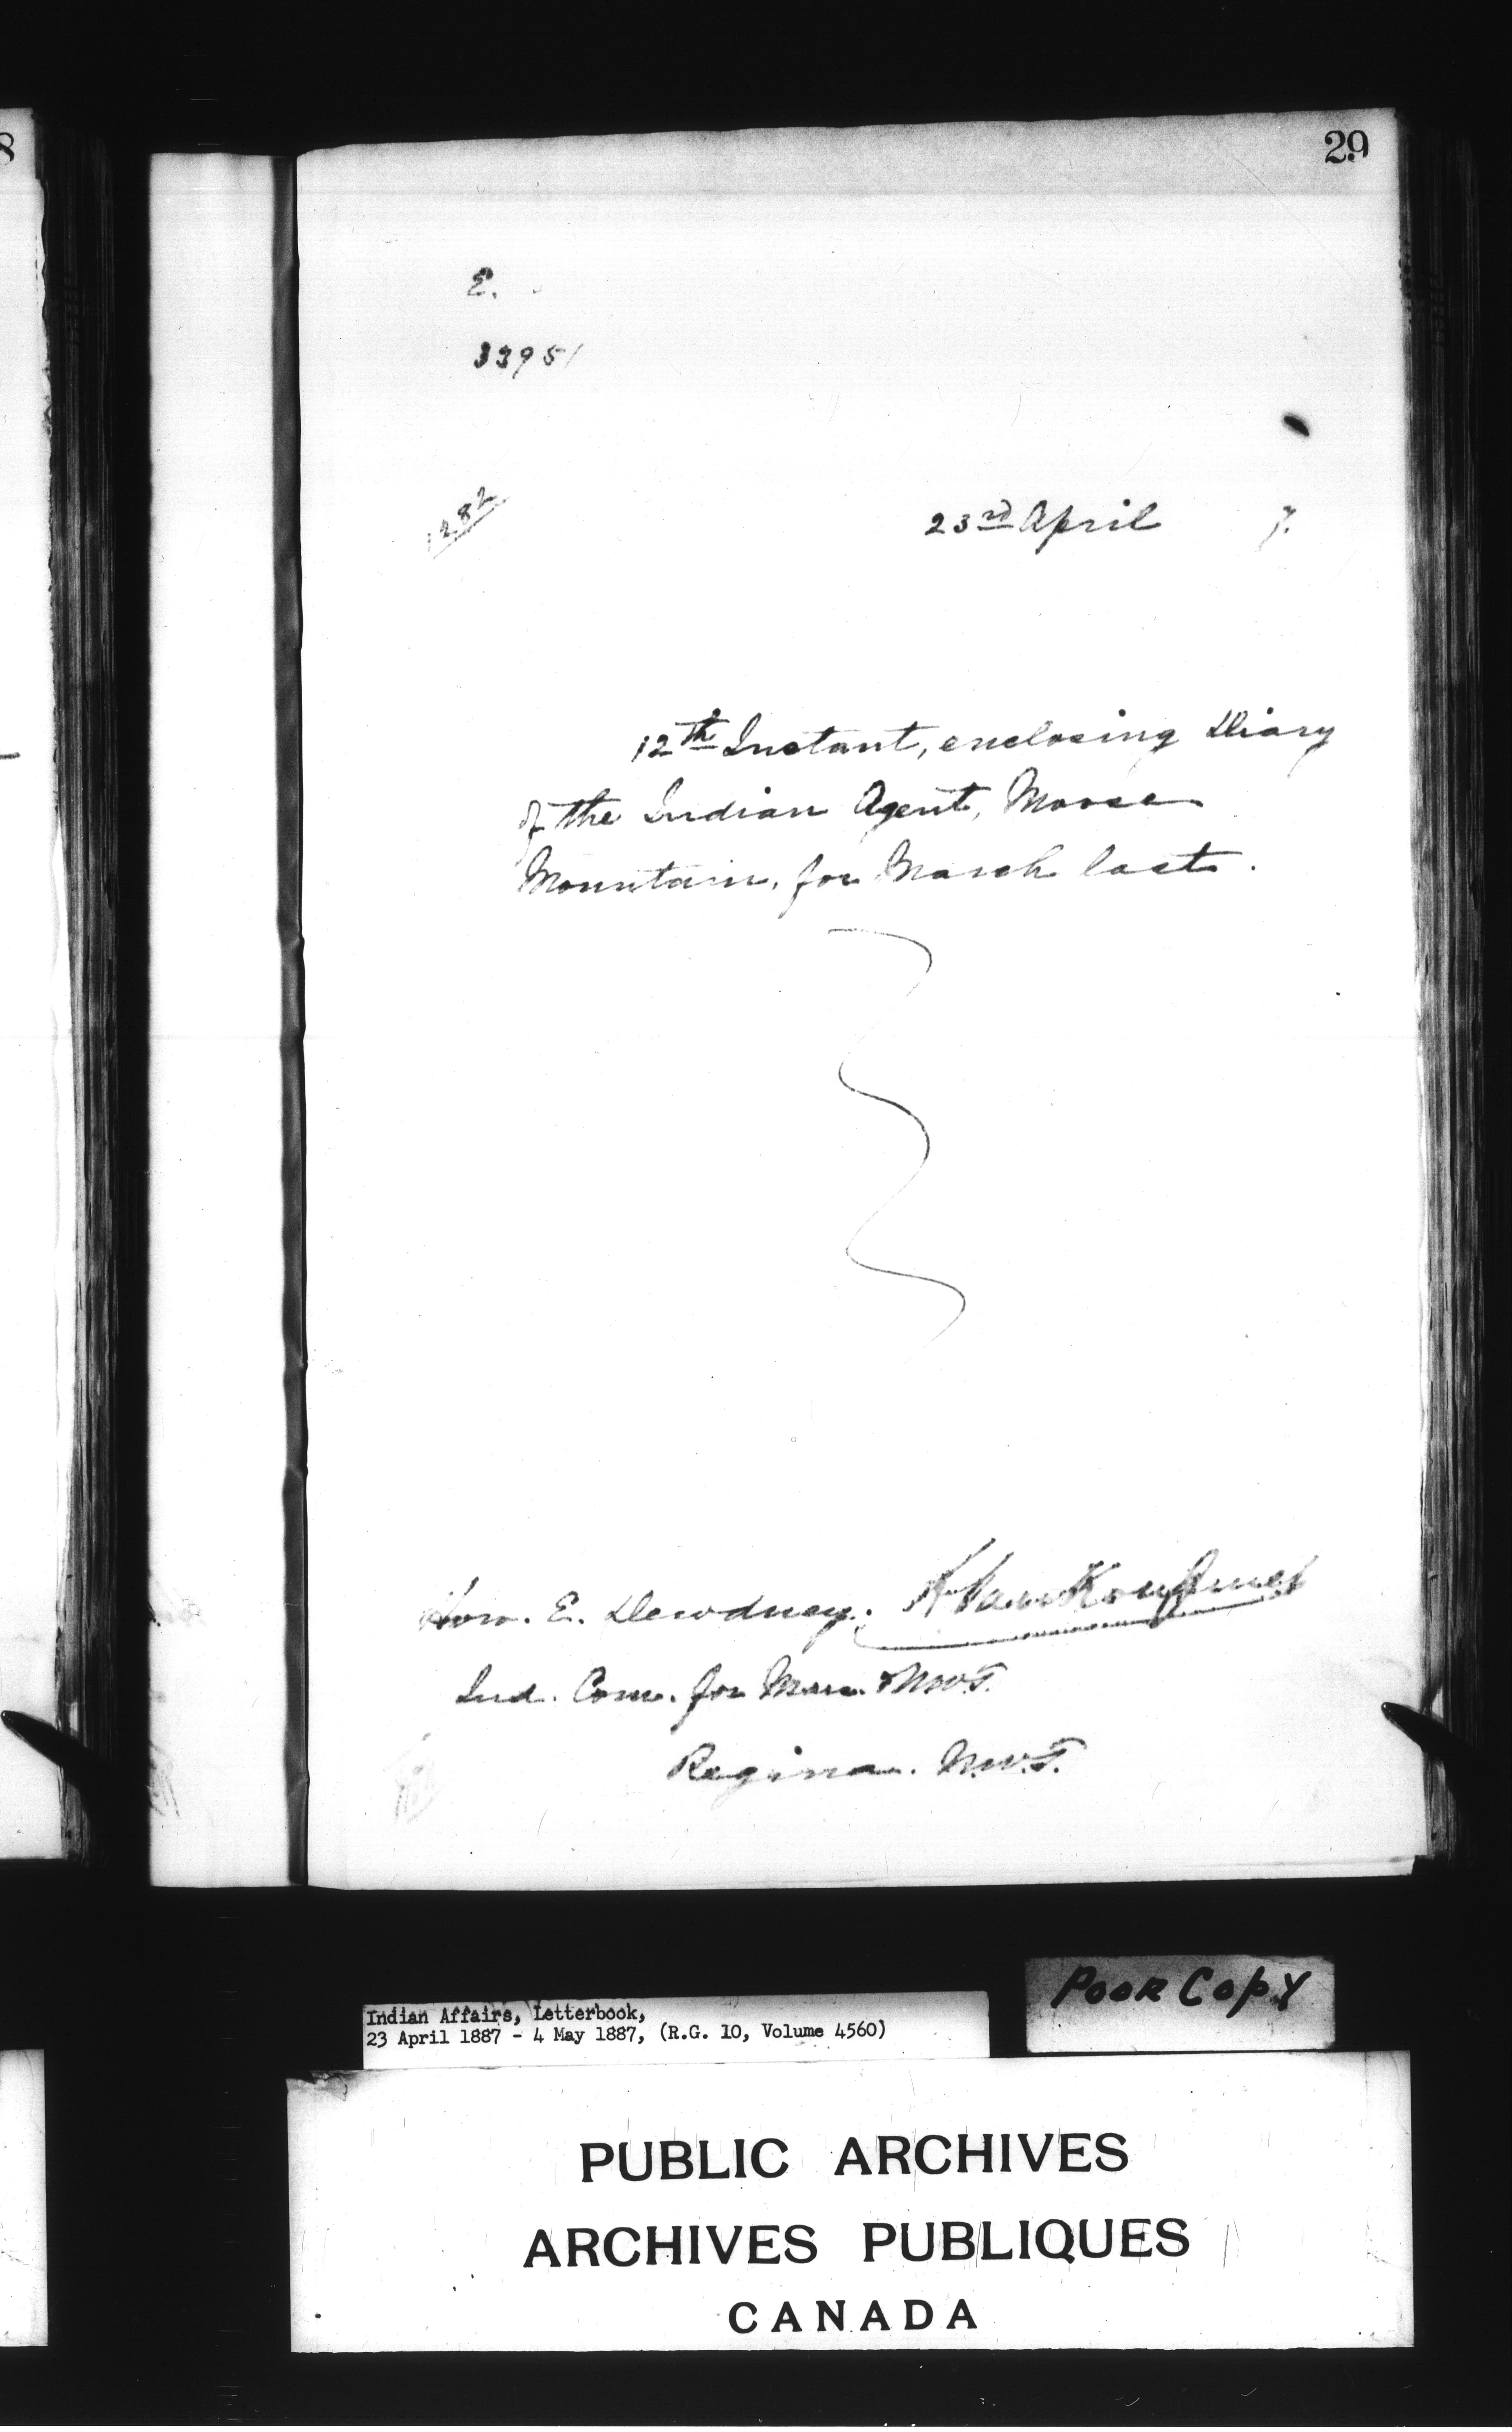 8
29
E.
33951
1282
23rd April 7.
12th Instant, enclosing Diary
of the Indian Agent, Moose
Mountain, for March last.
Hon. E. Dewdney. L. VanKoughnet
Ind. Com. for Man. & N.W.T.
Regina. N.W.T.
POOR COPY
Indian Affairs, Letterbook,
23 April 1887 - 4 May 1887, (R.G. 10, Volume 4560)
PUBLIC ARCHIVES
ARCHIVES PUBLIQUES
CANADA